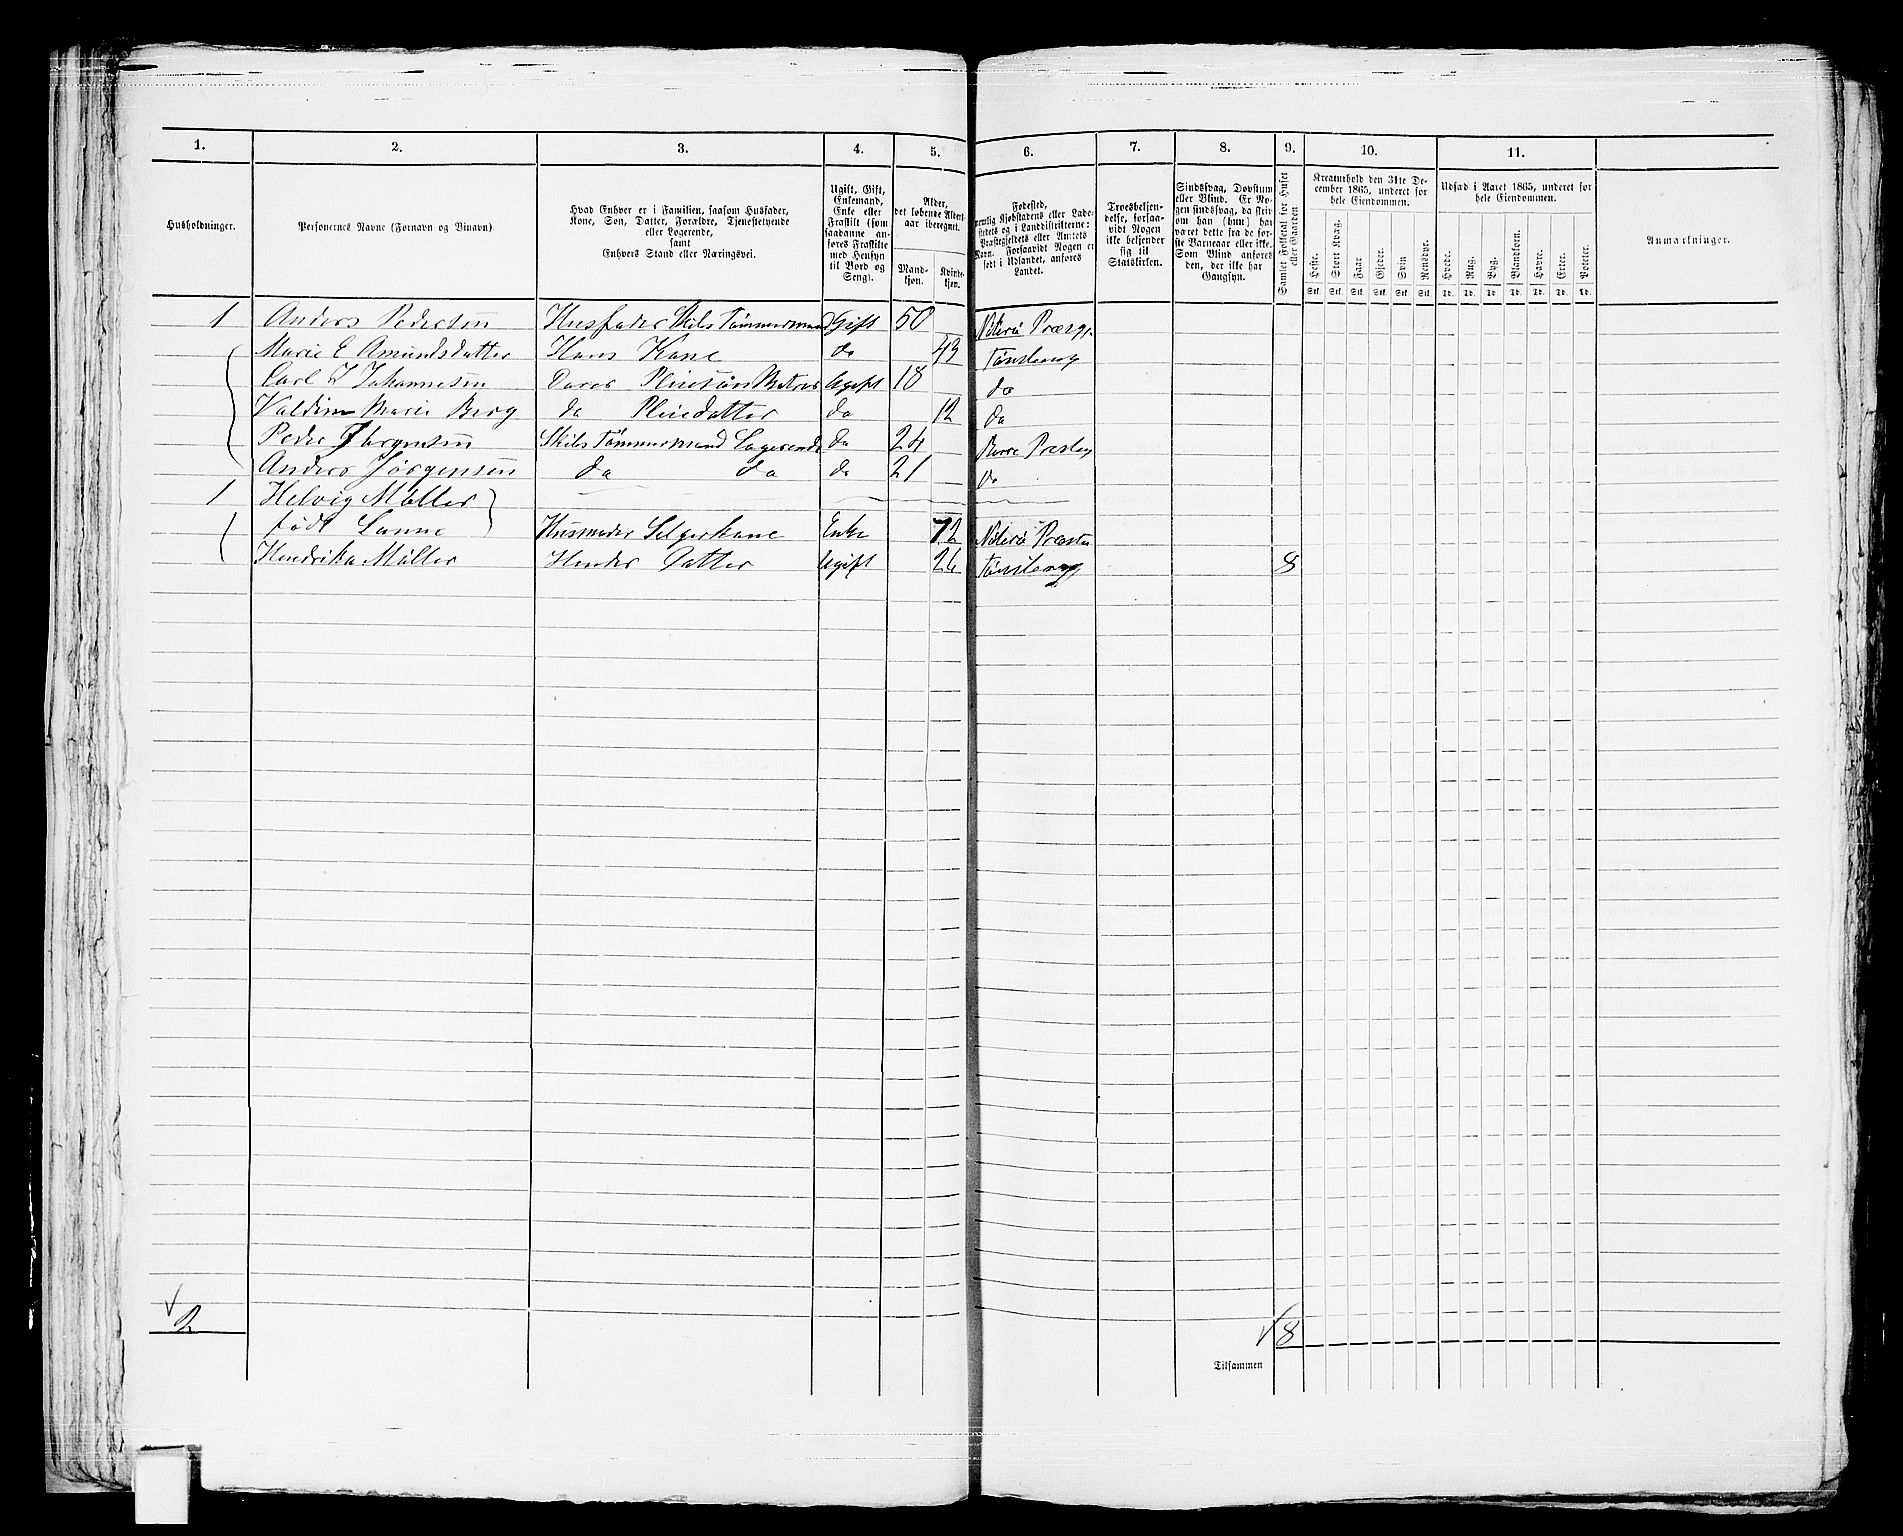 1. 2. 3. 4. 5. 6. 7. 8. 9. 10. 11.
Husholdninger.
Personernes Navne (Fornavn og Binavn).
Hvad Enhver er i Familien, saasom Husfader,
Kone, Søn, Datter, Forældre, Tjenestetyende
eller Logerende,
samt
Enhvers Stand eller Næringsvei.
Ugift, Gift,
Enkemand,
Enke eller
Fraskilt (som
saadanne an-
føres Fraskilte
med Hensyn
til Bord og
Seng).
Alder,
det løbende Alders-
aar iberegnet.
Mand-
kjøn.
Kvinde-
kjøn.
Fødested,
nemlig Kjøbstadens eller Lade-
stedets og i Landdistrikterne:
Præstegjeldets eller Amtets
Navn. Forsaavidt Nogen er
født i Udlandet, anføres
Landet.
Troesbekjen-
delse, forsaa-
vidt Nogen
ikke bekjender
sig til
Statskirken.
Sindssvag, Døvstum
eller Blind. Er No-
gen sindssvag, da skriv
om han (hun) har
været dette fra de før-
ste Barneaar eller ikke.
Som Blind anføres
den, der ikke har
Gangsyn.
Samlet Folketal for Huset
eller Gaarden
Kreaturhold den 31te De-
cember 1865, underet for
hele Eiendommen.
Heste. Stort Kvæg. Faar Gjeder. Svin Rensdyr.
Stk. Stk. Stk. Stk. Stk. Stk.
Udsæd i Aaret 1865, underet for
hele Eiendommen.
Hvede. Rug. Byg. Blandkorn. Havre. Erter. Poteter.
Td. Td. Td Td. Td. Td. Td.
Anmærkninger.
1 Anders Pedersen Husfader Skibs Tømmermand Gift 50 Nøterø
Marie E Amundsdatter Hans Kone do 43 Tønsberg
Carl J Johannesen Deres Pleiesøn Matros Ugift 18 do
Marie Berg do Pleiedatter do 12 do
Peder Jørgensen Skibs Tømmermand Logerende do 24 Borre
Anders Jørgensen do do do 21 do
1 Helvig Møller
født Husmoder Enke 72 Nøterø
Hendrika Møller Hendes Datter Ugift 26 Tønsberg 8
2
8
Tilsammen